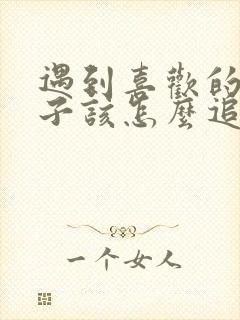 遇到喜歡的
子該怎麼追
一个女人